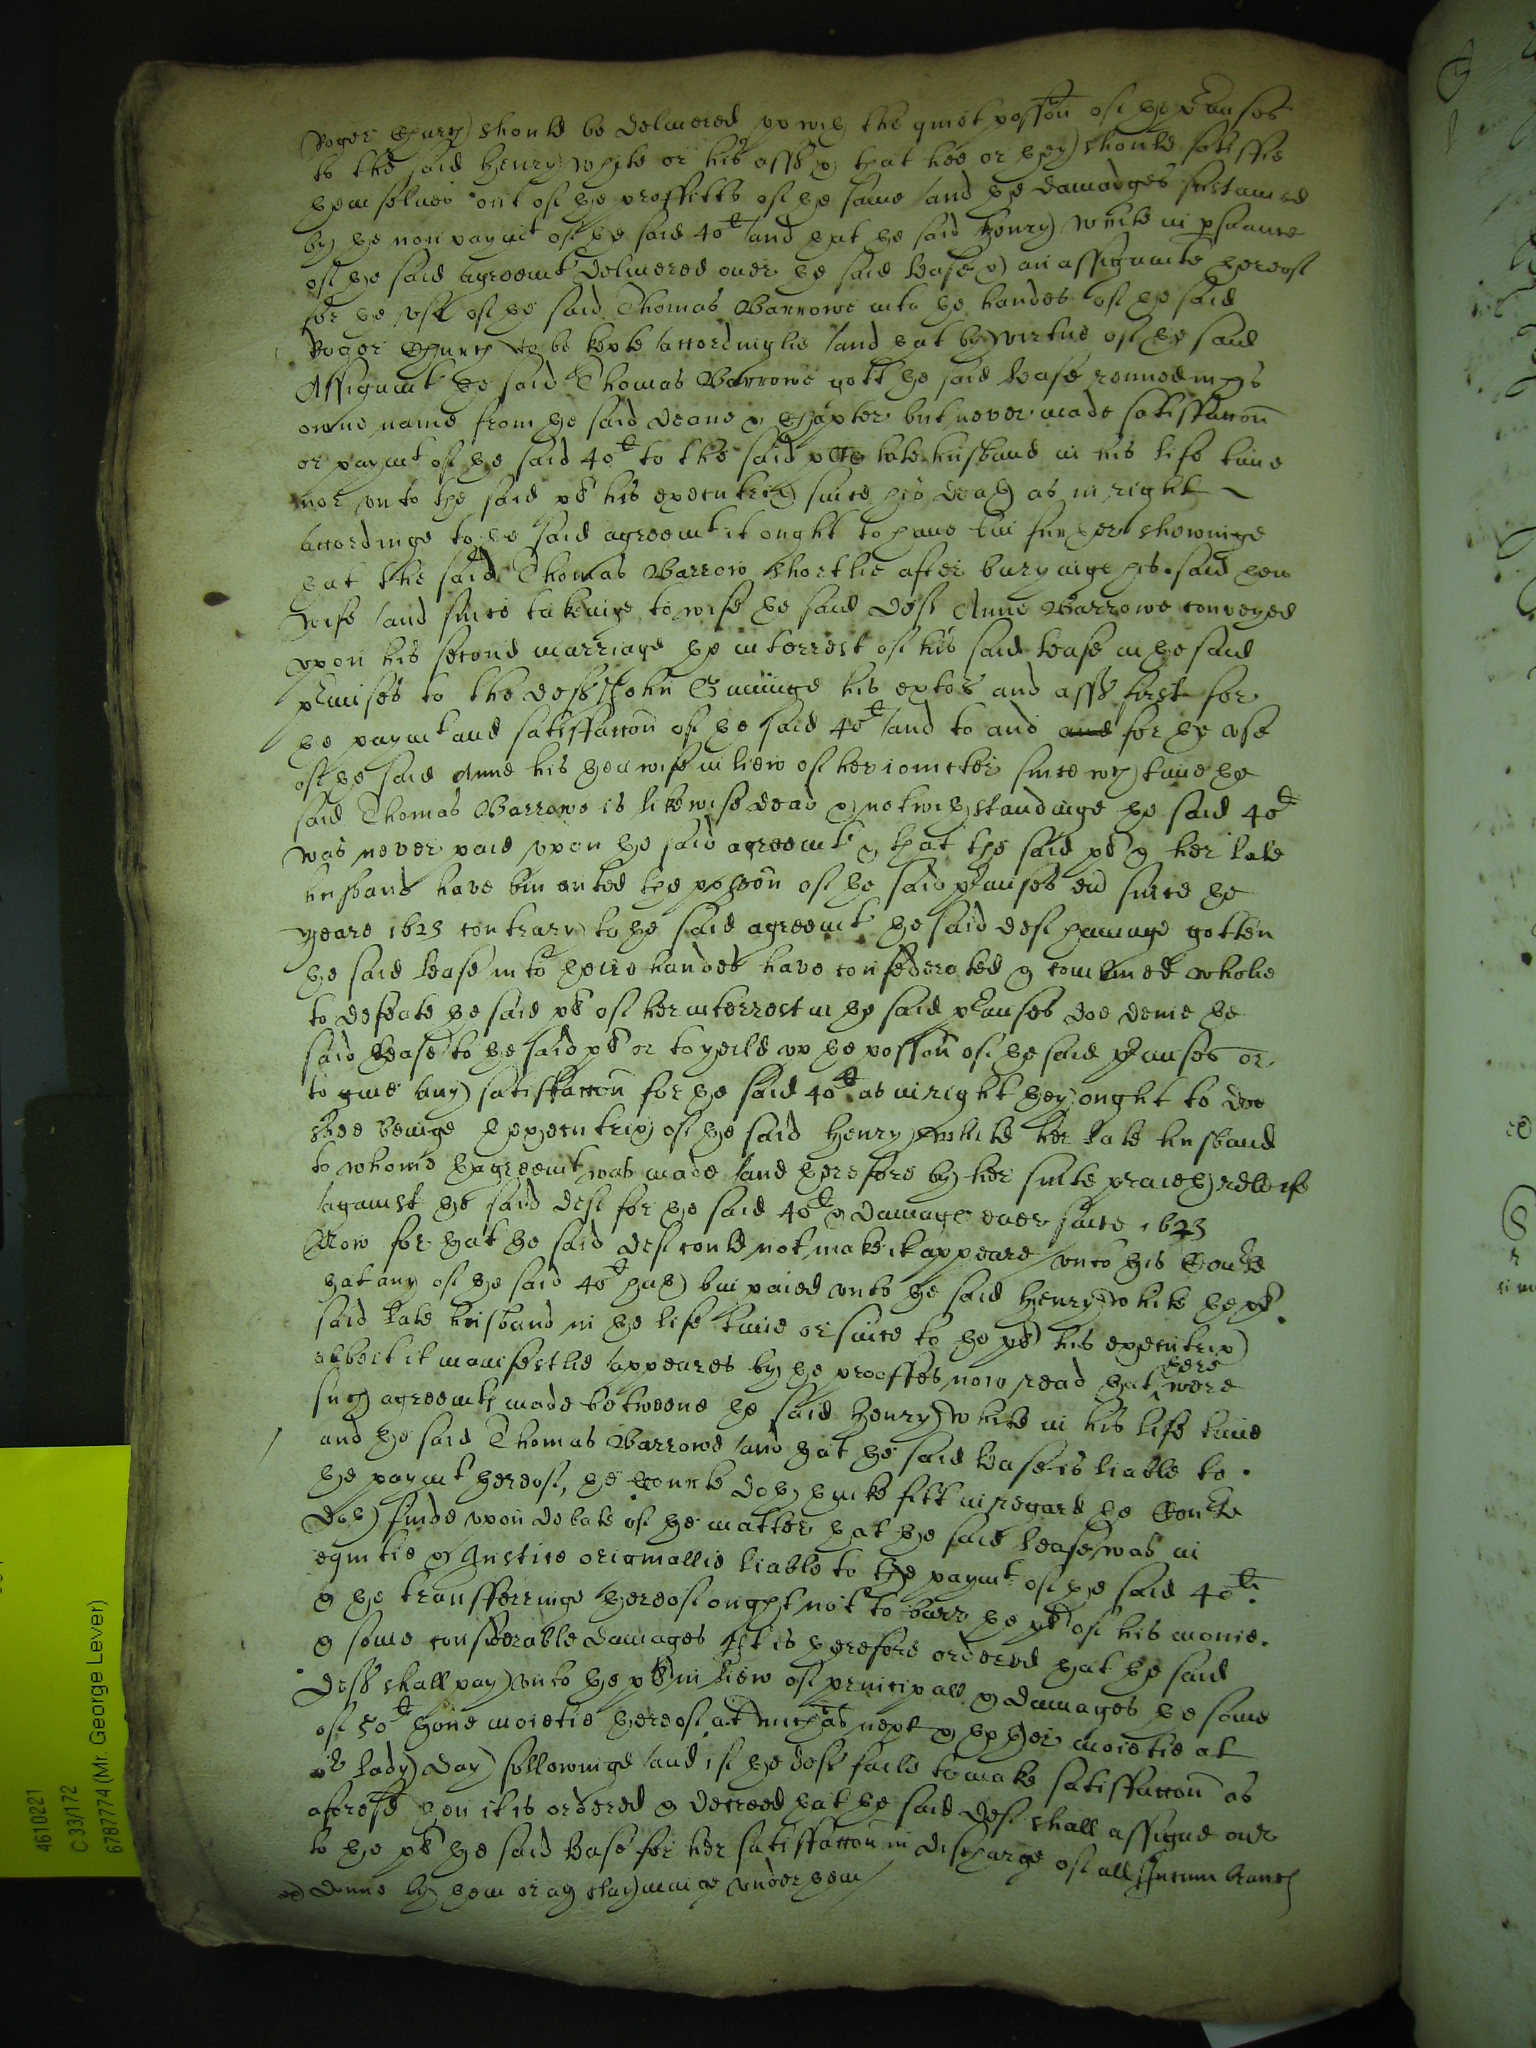 Roger Church should be delivered upp wth the quiet possion of the prmisses
to the said Henry White or his asss & that hee or they should satisfie
themselues out of the proffitts of the same and the damadges sustained
by the non paymt of the said 40li and that the said Henry White in psuance
of the said agreemt delivered over the said lease & an assignmte thereof
for the use of the said Thomas Barrowe into the handes of the said
Roger Church to be kepte accordinglie and that by virtue of the said
Assignmt the said Thomas Barrowe gott the said lease renued in his
owne name from the said Deane & Chapter but never made satisfaccon
or paymt of the said 40li to the said plts late husband in his life time
nor unto the said plt his executrix since his death as in right
accordinge to the said agreemt it ought to haue bin further shewinge
that the said Thomas Barrow shortlie after buryinge his said then
wife and since takeinge to wife the said deft Anne Barrowe conveyed
upon his second marriage the interrest of his said lease in the said
prmisses to the deft John his extors and asss first for
the paymt and satisfaccon of the said 40li and to and and for the use
of the said Anne his then wife in liew of her iointer since wch time the
said Thomas Barrowe is likewise dead & notwithstandinge the said 40li
was never paid upon the said agreemt & that the said plt & her late
husband have bin outed the possion of the said prmisses ever since the
yeare 1623 contrary to the said agreemt the said deft haveinge gotten
the said lease into theire handes have confederated & combined wholie
to defeate the said plt of her interrest in the said prmisses doe denie the
said lease to the said plt or to yeild up the possion of the said prmisses or
to give any satisfaccon for the said 40li as in right they ought to doe
shee beinge thexecutrix of the said Henry White her late husband
to whome thagreemt was made and therefore by her suite praieth releife
against the said deft for the said 40li & damage ever since 1623
Now for that the said deft could not make it appeare unto this Courte
that any of the said 40li hath bin paied unto the said Henry White the plts
said late husband in the life time or since to the plt his executrix
albeit it manifestlie appeares by the prooffes now read that there were
such agreemts made betweene the said Henry White in his life time
and the said Thomas Barrowe and that the said lease is liable to
the paymt thereof, the Courte doth thinke fitt in regard the Courte
doth finde upon debate of the matter that the said lease was in
equitie & Justice originallie liable to the paymt of the said 40li
& the transferringe thereof ought not to barr the plt of his monie
& some considerable damages It is therefore ordered that the said
deft shall pay unto the plt in liew of principall & damages the some
of 50li thone moietie thereof att Mich'as next & thother moietie at
or lady day followinge and if the deft faile to make satisfaccon as
aforesd then it is ordered & decreed that the said deft shall assigne over
to the plt the said lease for her satisfaccon in discharge of all Incumbrances
donne by them or any claymainge under them
4610221
C 33/172
6787774 (Mr. George Lever)